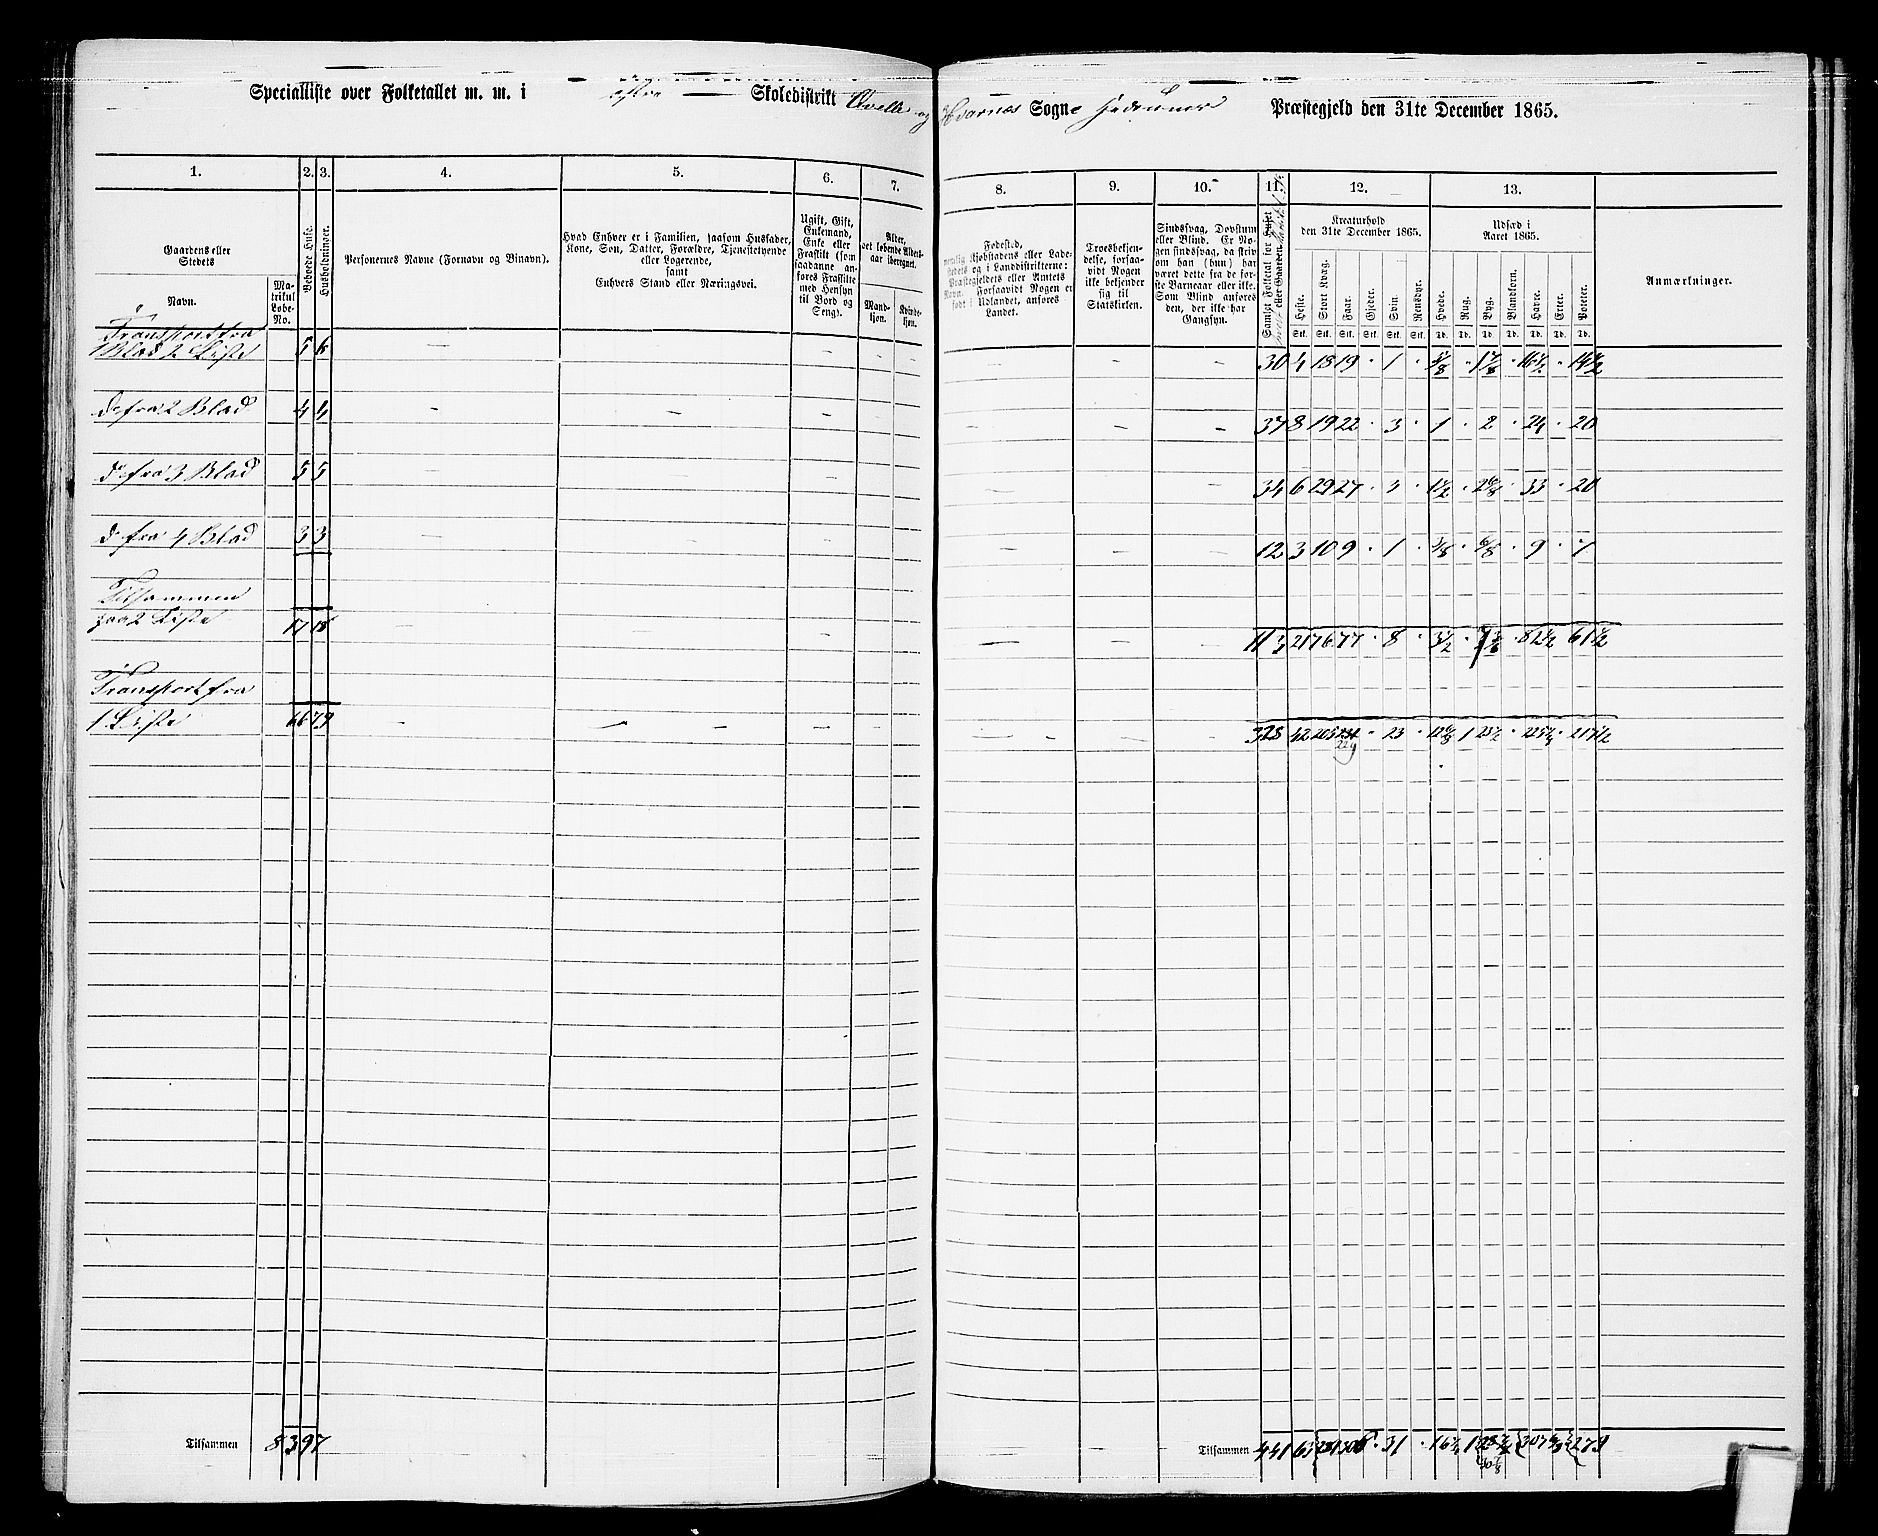 Specialliste over Folketallet m. m. i Skoledistrikt og Sogne Præstegjeld den 31te December 1865.
1. 2. 3. 4. 5. 6. 7. 8. 9. 10. 11. 12. 13.
Gaardens eller Stedets
Navn.
Matrikul Løbe-No.
Beboede Huse.
Husholdninger.
Personernes Navne (Fornavn og Binavn).
Hvad Enhver er i Familien, saasom Husfader, Kone, Søn, Datter, Forældre, Tjenestetyende eller Logerende,
samt
Enhvers Stand eller Næringsvei.
Ugift, Gift, Enkemand, Enke eller Fraskilt (som saadanne anføres Fraskilte med Hensyn til Bord og Seng).
Alder, det løbende Aldersaar iberegnet.
Mandkjøn.
Kvindekjøn.
Fødested, nemlig Kjøbstadens eller Ladestedets og i Landdistrikterne: Præstegjeldets eller Amtets Navn. Forsaavidt Nogen er født i Udlandet, anføres Landet.
Troesbekjendelse, forsaavidt Nogen ikke bekjender sig til Statskirken.
Sindssvag, Døvstum eller Blind. Er Nogen sindssvag, da skrives om han (hun) har været dette fra de første Barneaar eller ikke. Som Blind anføres den, der ikke har Gangsyn.
Samlet Folketal for
Kreaturhold
den 31te December 1865.
Heste. Stort Kvæg. Faar. Gjeder. Svin. Rensdyr.
Stk. Stk. Stk. Stk. Stk. Stk.
Udsæd i
Aaret 1865.
Hvede. Rug. Byg. Blandkorn. Havre. Erter. Poteter.
Td. Td. Td. Td. Td. Td. Td.
Anmærkninger.
Transport fra
1 Blad 2 Liste 5 6 30 4 18 19 · 1 ·
do fra 2 Blad 4 4 37 8 19 22 · 3 · 1 · 2 · 24 · 20
do fra 3 Blad 5 5 34 6 29 27 · 3 · 1½ · 2 6/8 · 33 · 20
do fra 4 Blad 3 3 12 3 10 9 · 1 · 3/8 · 6/8 · 9 · 7
Tilsammen
paa 2 Liste 17 18 113 21 76 77 · 8 · 3½
Transport fra
1 Liste 66 79 328 42 205 · 23
Tilsammen 83 97 Tilsammen 441 63 281 306 · 31 · 279